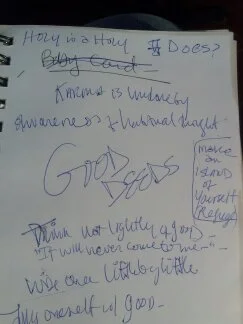 Holy is a Holy # Does?
Baby Card
Karma is undone by
awareness of natural thought
GOOD
DEEDS
make
an
island
of
yourself
Refuge
Think not lightly of good
"It will never come to me"
wise one little by little
fills oneself w/ good